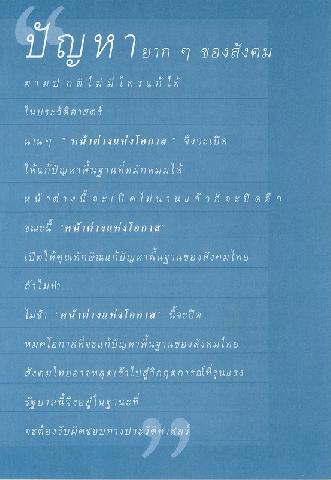 ปัญหา ยาก ๆ ของสังคม
ตามปกติไม่มีใครแก้ได้
ในประวัติศาสตร์
นานๆ "หน้าต่างแห่งโอกาส" จึงจะเปิด
ให้แก้ปัญหาพื้นฐานที่หมักหมมได้
หน้าต่างนี้จะเปิดไม่นานแล้วก็จะปิดอีก
ขณะนี้ "หน้าต่างแห่งโอกาส"
เปิดให้คุณทักษิณแก้ปัญหาพื้นฐานของสังคมไทย
ถ้าไม่ทำ
ไม่ช้า "หน้าต่างแห่งโอกาส" นี้จะปิด
หมดโอกาสที่จะแก้ปัญหาพื้นฐานของสังคมไทย
สังคมไทยอาจหลุดเข้าไปสู่วิกฤตการณ์ที่รุนแรง
รัฐบาลนี้จึงอยู่ในฐานะที่
จะต้องรับผิดชอบทางประวัติศาสตร์